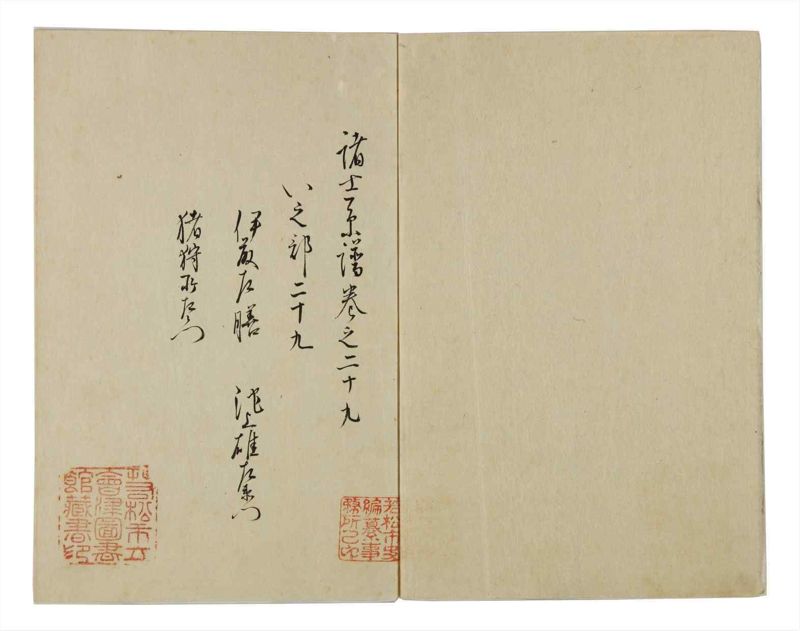 諸士系譜巻之二十九
い之部二十九
伊藤左膳 池上雄左衛門
猪狩所左衛門
若松市史
編纂事
務所之印
若松市立
會津圖書
館藏書印